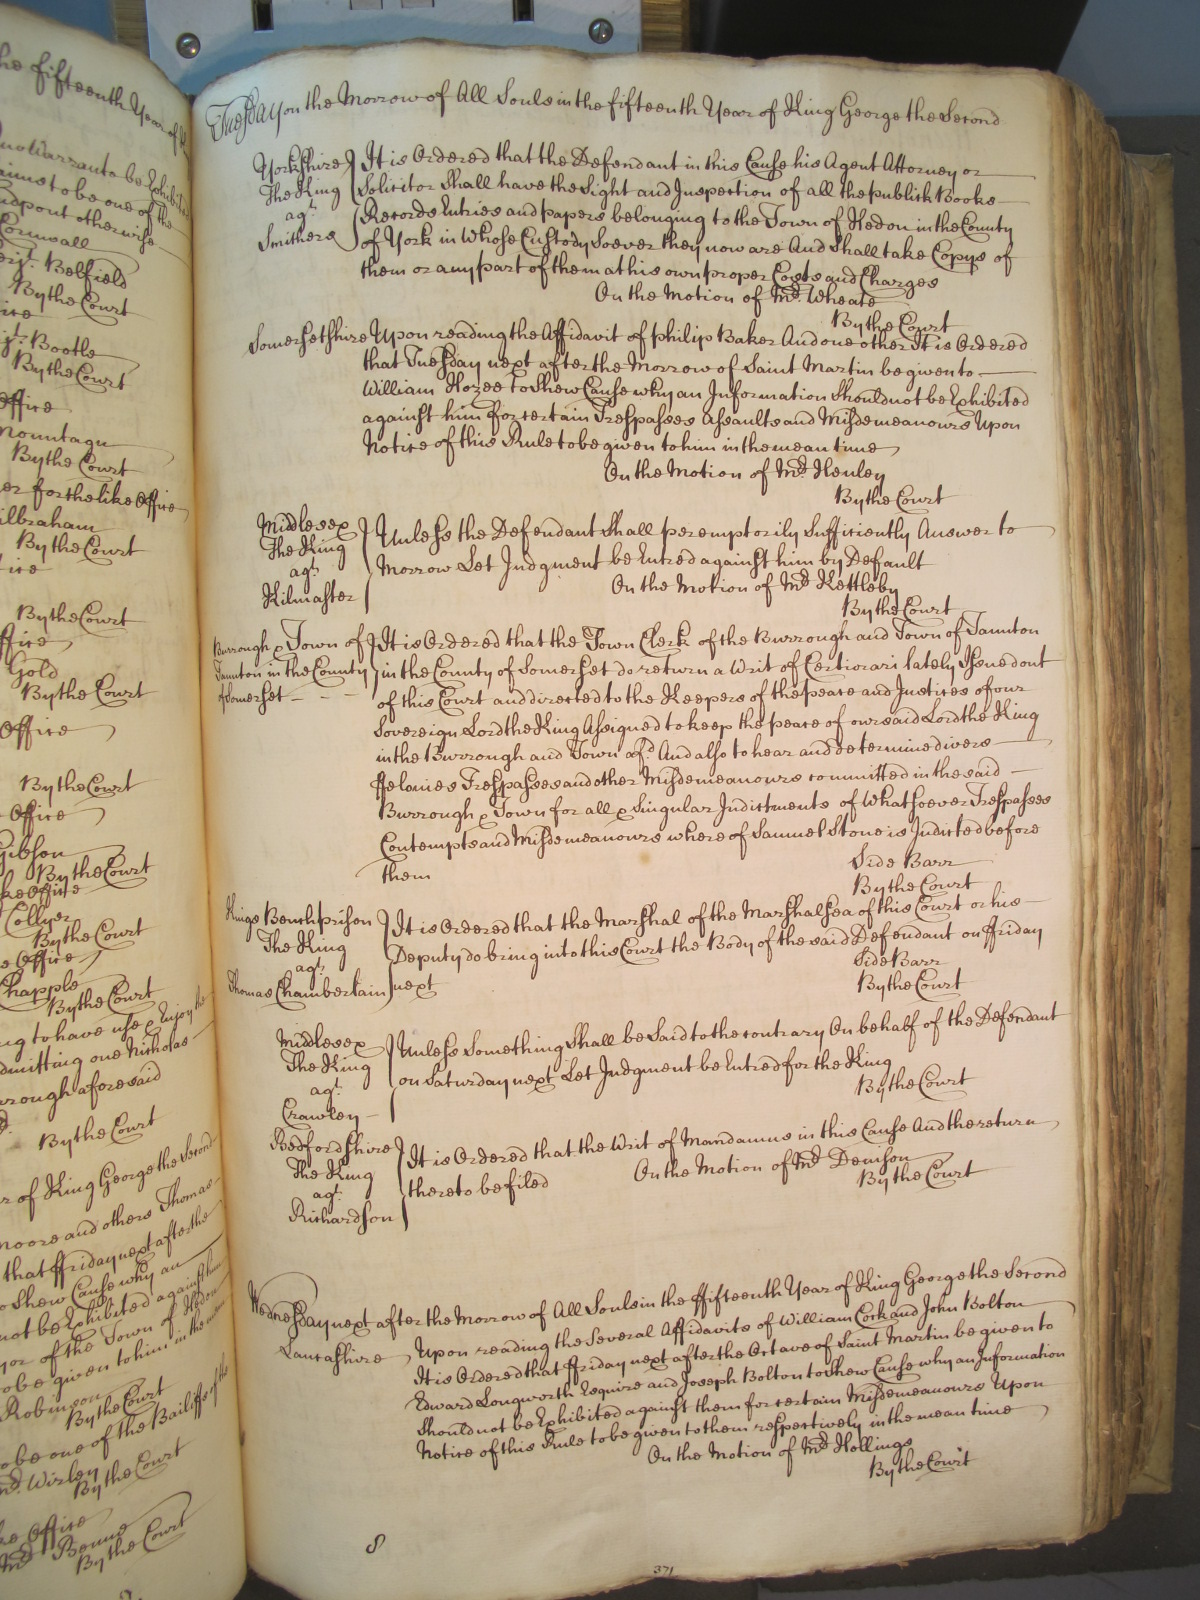 he fifteenth Year of
uo Warranto be Exhibited
aimst to be one of the
nd port otherwise
Cornwall
erjt. Belfield
By the Court
ire
jt. Bootle
By the Court
Office
Mountagu
By the Court
er for the like Office
ilbraham
By the Court
ire
By the Court
ffice
Gold
By the Court
Office
By the Court
Office
Gibson
By the Court
ke Office
Collyer
By the Court
e Office
Chapple
By the Court
ng to have use & Enjoy the
dmitting one Nicholas
rrough aforesaid
By the Court
r of King George the Second
moore and others Thomas
that ffriday next after the
o Shew Cause why an
not be Exhibited against him
yor of the Town of Hedon
o be given to him in the mean
Robinson
By the Court
o be one of the Bailiffs of the
Md. Wirley
By the Court
ke Office
Md. Benne
By the Court
Tuesday on the Morrow of All Souls in the fifteenth Year of King George the Second
Yorkshire It is Ordered that the Defendant in this Cause his Agent Attorney or
The King Solicitor Shall have the Sight and Inspection of all the publick Books
agt. Records Entries and papers belonging to the Town of Hedon in the County
Smithers of York in Whose Custody Soever they now are And Shall take Copys of
them or any part of them at his own proper Costs and Charges
On the Motion of Mr. Wheate
By the Court
Somersetshire Upon reading the Affidavit of philip Baker And one other It is Ordered
that Tuesday next after the Morrow of Saint Martin be given to
William Hozee to Shew Cause why an Information Should not be Exhibited
against him for certain Trespasses Assaults and Misdemeanours Upon
Notice of this Rule to be given to him in the mean time
On the Motion of Mr. Henley
By the Court
Middlesex Unless the Defendant Shall peremptorily Sufficiently Answer to
The King Morrow Let Judgment be Entred against him by Default
agt. On the Motion of Mr. Kettleby
Kilmaster By the Court
Burrough & Town of It is Ordered that the Town Clerk of the Burrough and Town of Taunton
Taunton in the County in the County of Somerset do return a Writ of Certiorari lately Issued out
of Somerset of this Court and directed to the Keepers of the peace and Justices of our
Sovereign Lord the King Assigned to keep the peace of our said Lord the King
in the Burrough and Town afd. And also to hear and determine divers
ffelonies Trespasses and other Misdemeanours committed in the said
Burrough & Town for all & Singular Indictments of Whatsoever Trespasses
Contempts and Misdemeanours where of Samuel Stone is Indicted before
them Side Barr
By the Court
Kings Bench prison It is Ordered that the Marshal of the Marshalsea of this Court or his
The King Deputy do bring into this Court the Body of the said Defendant on ffriday
agt. Side Barr
Thomas Chamberlain next By the Court
Middlesex Unless Something Shall be Said to the contrary On behalf of the Defendant
The King on Saturday next Let Judgment be Entred for the King
agt. By the Court
Crawley
Bedfordshire It is Ordered that the Writ of Mandamus in this Cause And the return
The King thereto be filed On the Motion of Mr. Denison
agt. By the Court
Richardson
Wednesday next after the Morrow of All Souls in the ffifteenth Year of King George the Second
Lancashire Upon reading the Several Affidavits of William Cork and John Bolton
It is Ordered that ffriday next after the Octave of Saint Martin be given to
Edward Longworth Esquire and Joseph Bolton to Shew Cause why an Information
Should not be Exhibited against them for certain Misdemeanours Upon
Notice of this Rule to be given to them respectively in the mean time
On the Motion of Mr. Hollings
By the Court
8
371